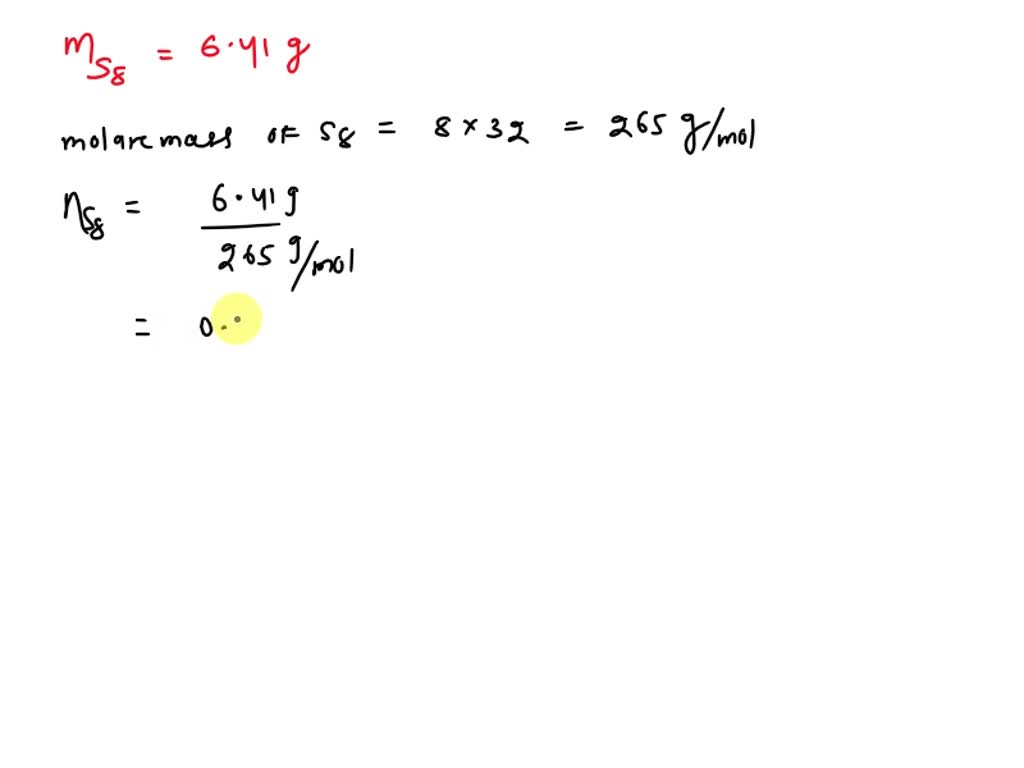 mS8 = 6.41 g
molarcmass of S8 = 8 × 32 = 265 g/mol
nS8 = 6.41 g
265 g/mol
= 0..